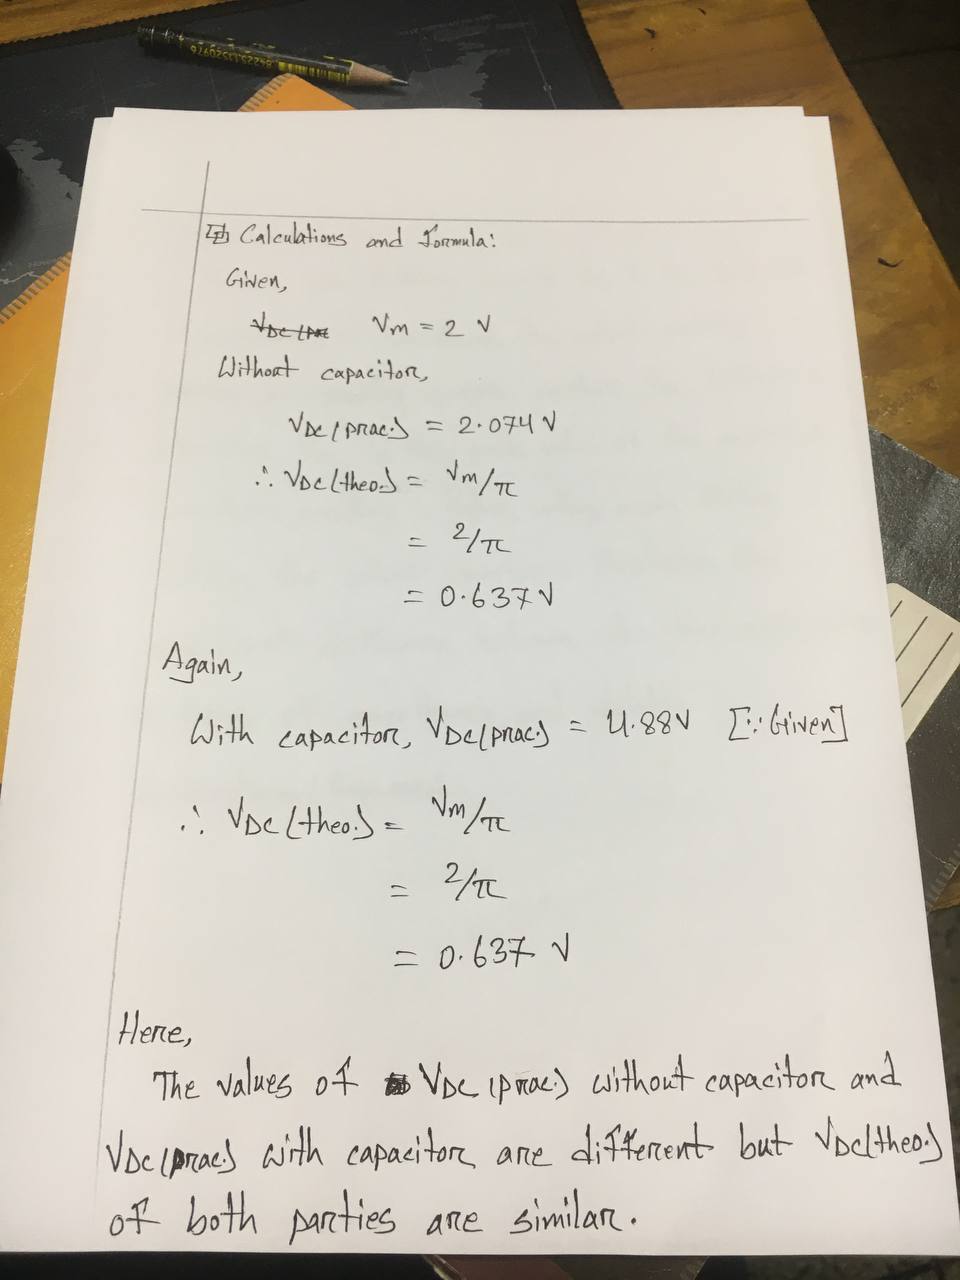 Calculations and Formula:
Given,
Vm = 2 V
Without capacitor,
VDC(prac.) = 2.074 V
∴ VDC(theo.) = Vm/π
= 2/π
= 0.637 V
Again,
With capacitor, VDC(prac.) = 4.88V [∵ Given]
∴ VDC(theo.) = Vm/π
= 2/π
= 0.637 V
Here,
The values of VDC(prac.) without capacitor and
VDC(prac.) with capacitor are different but VDC(theo.)
of both parties are similar.